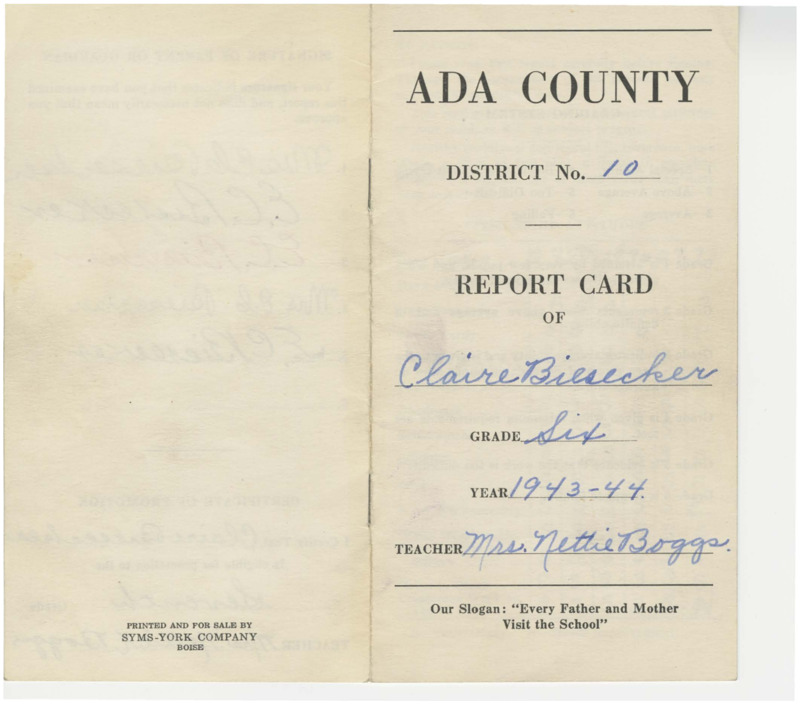 PRINTED AND FOR SALE BY
SYMS-YORK COMPANY
BOISE
ADA COUNTY
DISTRICT No. 10
REPORT CARD
OF
Claire Biesecker
GRADE Six
YEAR 1943-44
TEACHER Mrs. Nettie Boggs.
Our Slogan: "Every Father and Mother
Visit the School"